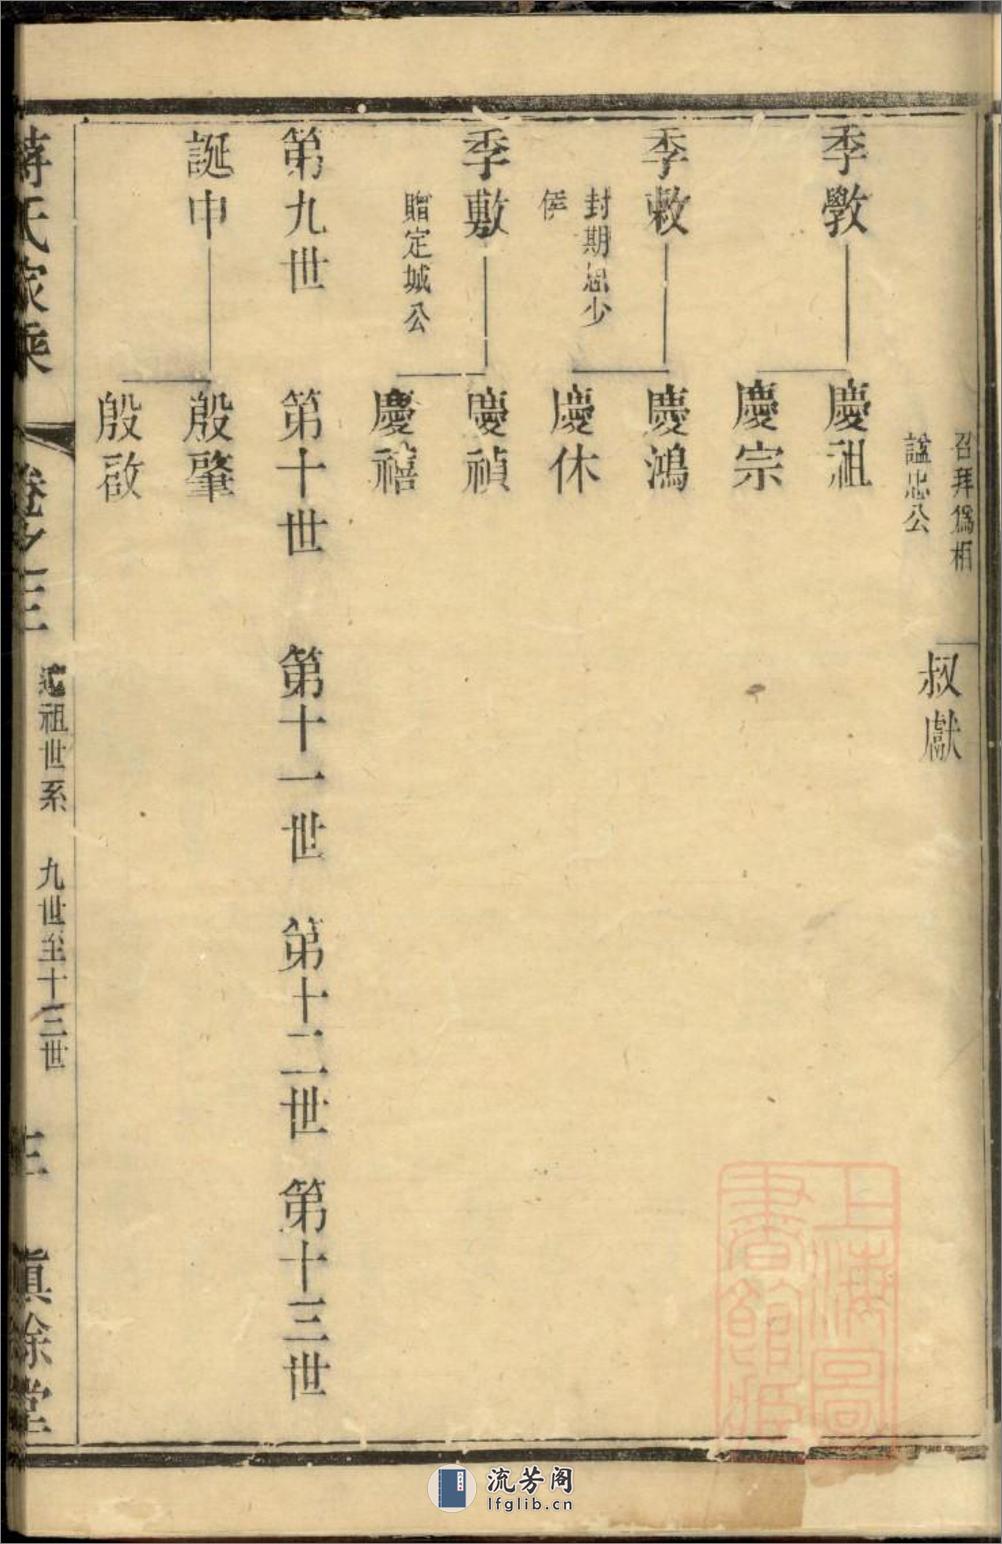 召拜爲相
諡忠公
叔獻
季斆
慶祖
慶宗
季敕
封期思少
侯
慶鴻
慶休
季敷
贈定城公
慶禎
慶禧
第九世
第十世
第十一世
第十二世
第十三世
誕申
殷肇
殷啟
蔣氏家乘
卷之三
遠祖世系
九世至十三世
三
慎餘堂
上海圖
書館藏
流芳阁
lfglib.cn